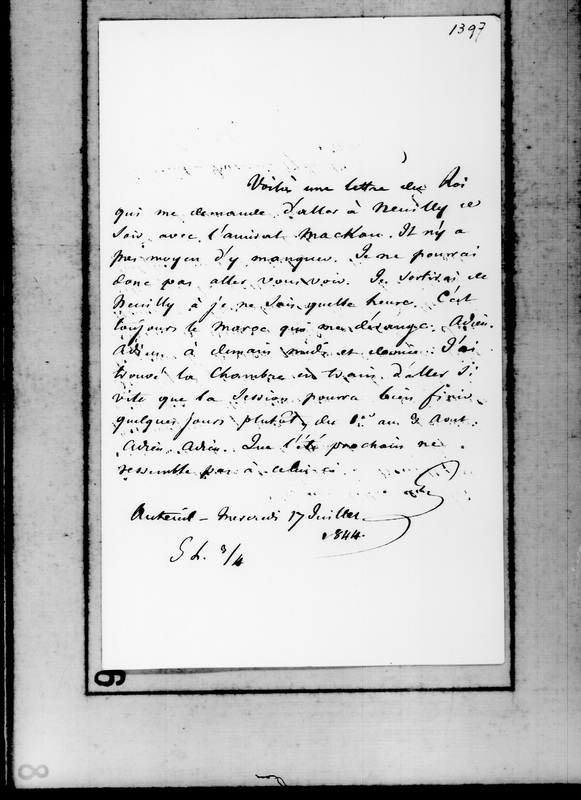 1397
Voilà une lettre du Roi
qui me demande d'aller à Neuilly ce
soir avec l'amiral Mackau. Il n'y a
pas moyen d'y manquer. Je ne pourrai
donc pas aller vous voir. Je sortirai de
Neuilly à je ne sais quelle heure. C'est
toujours le Maroc qui me dérange. Adieu.
Adieu à demain midi et demie. J'ai
trouvé la Chambre en train d'aller si
vite que la Session pourra bien finir
quelques jours plutôt, du 1er au 3 Aout.
Adieu, Adieu. Que l'été prochain ne
ressemble pas à celui ci
Auteuil - Mercredi 17 Juillet
1844.
5 h. 3/4
9
8